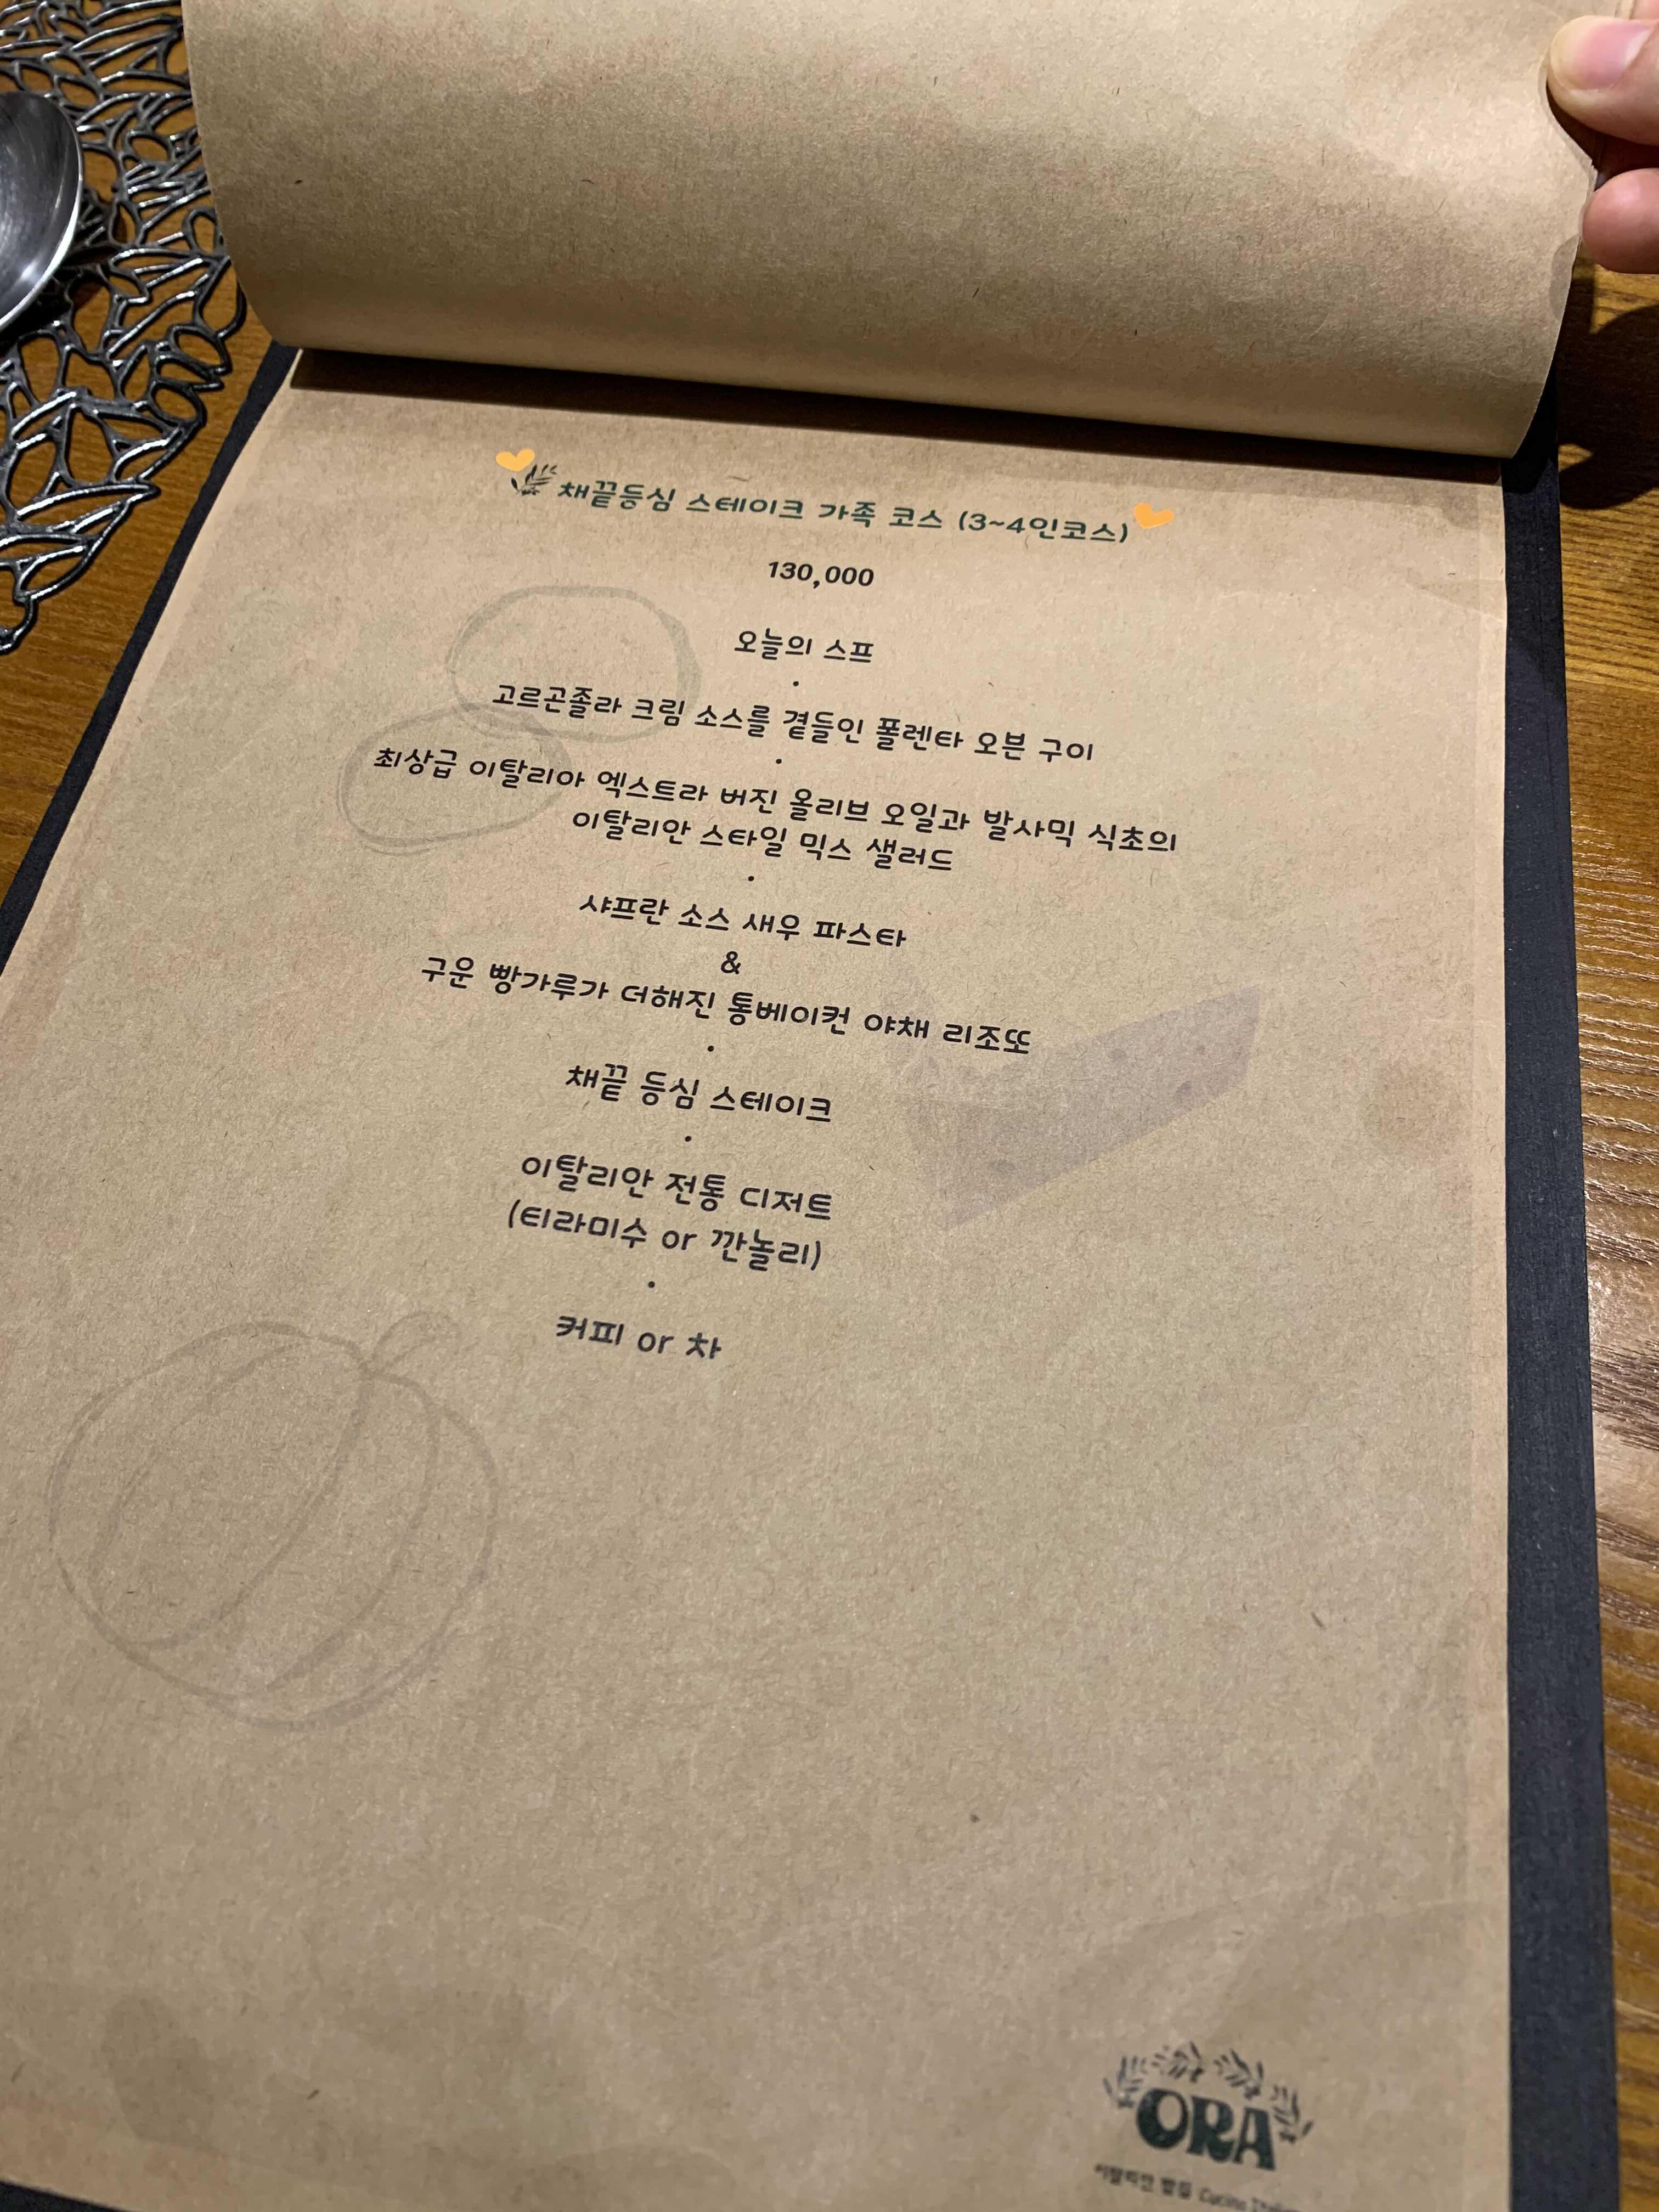 채끝등심 스테이크 가족 코스 (3~4인코스)
130,000
오늘의 스프
고르곤졸라 크림 소스를 곁들인 폴렌타 오븐 구이
최상급 이탈리아 엑스트라 버진 올리브 오일과 발사믹 식초의
이탈리안 스타일 믹스 샐러드
샤프란 소스 새우 파스타
&
구운 빵가루가 더해진 통베이컨 야채 리조또
채끝 등심 스테이크
이탈리안 전통 디저트
(티라미수 or 깐놀리)
커피 or 차
ORA
이탈리안 밥집 Cucina